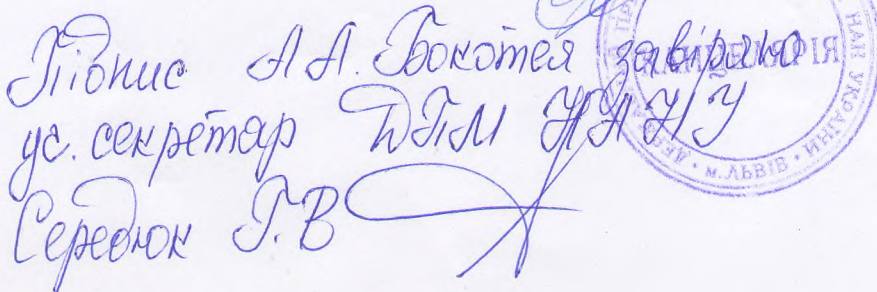 Підпис А.А. Бокотея завіряю
уч. секретар ДПМ НАНУ
Середюк Г.В
КАНЦЕЛЯРІЯ
НАН УКРАЇНИ • м. ЛЬВІВ • ДЕРЖА